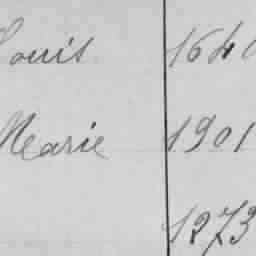 Louis 1640
Marie 1901
1273